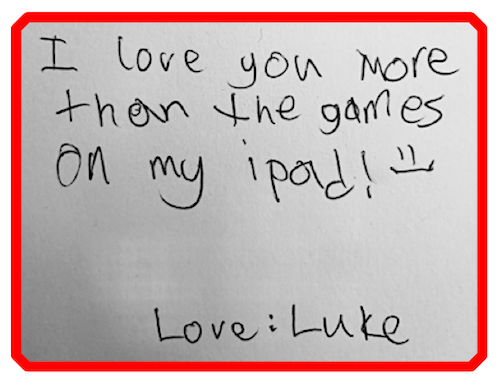 I love you more
than the games
on my ipad! =)
Love: Luke